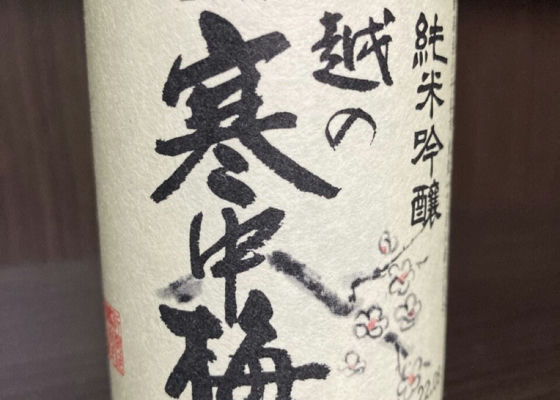 純米吟醸
越の
寒中梅